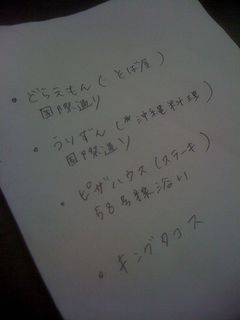 • どらえもん(・とば屋)
国際通り
• うりずん(*沖縄料理)
国際通り
• ピザハウス(ステーキ)
58号線沿い
• キングタコス